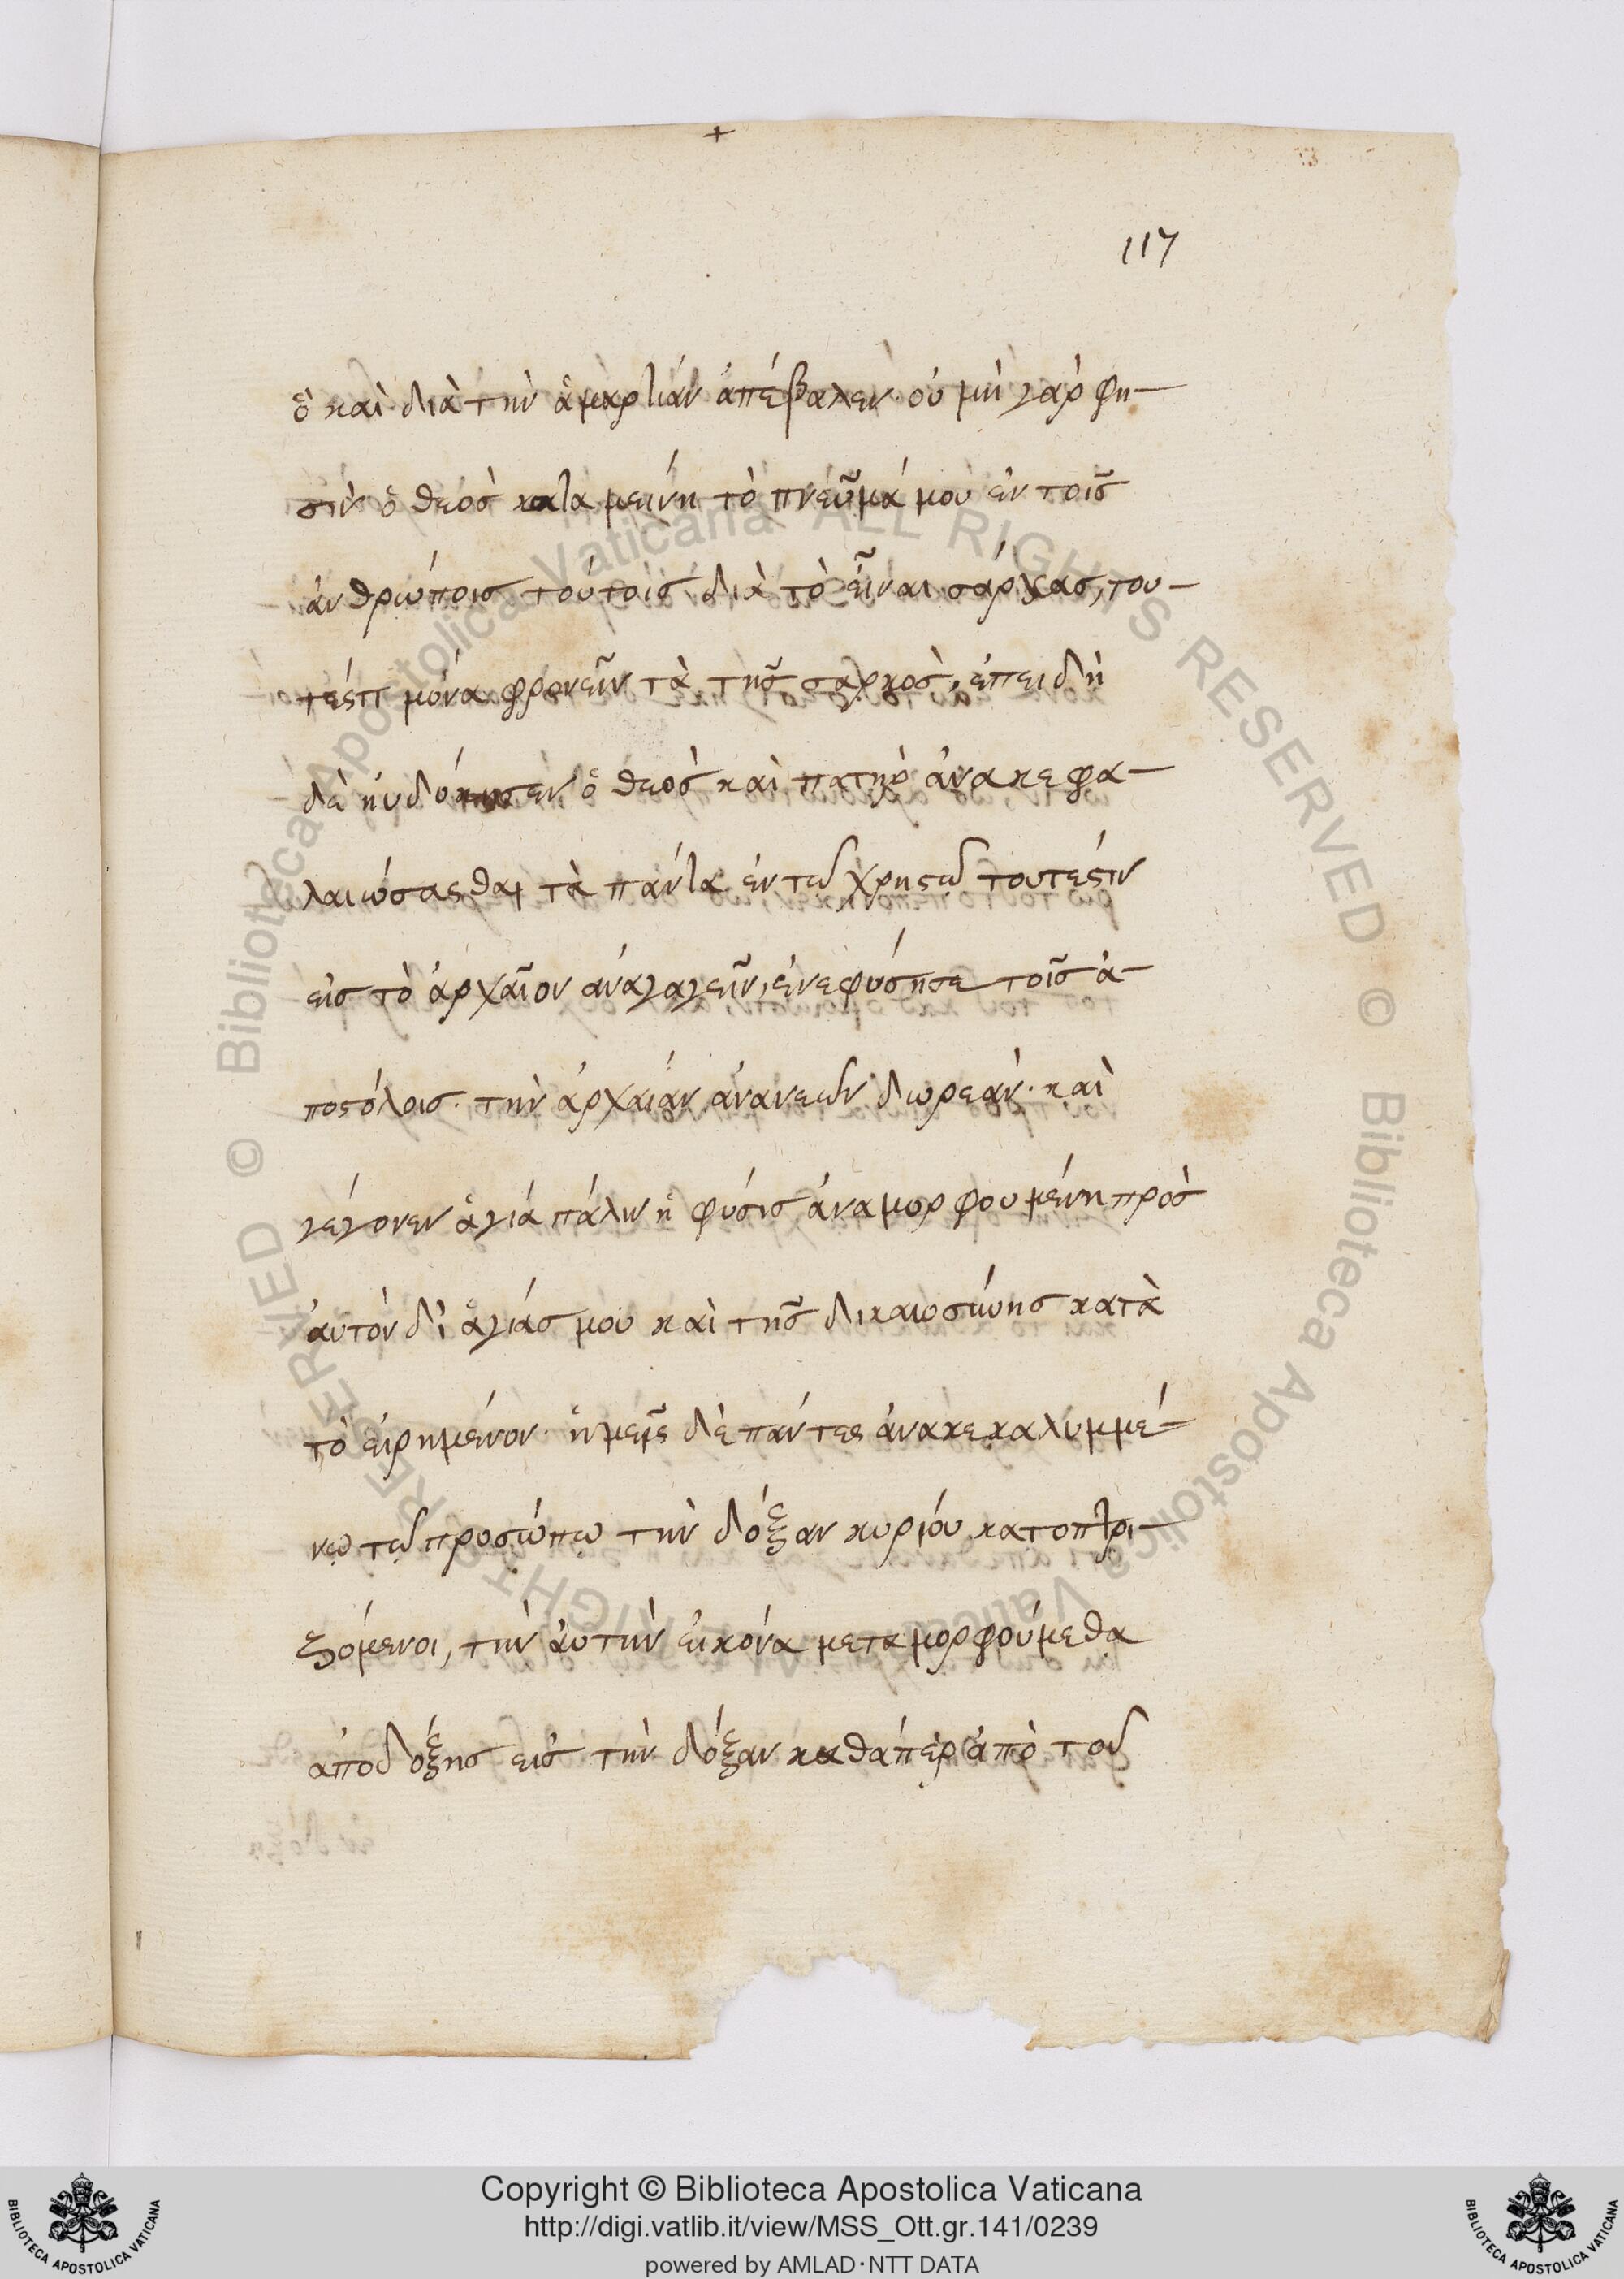 +
117
ὃ καὶ διὰ τὴν ἁμαρτίαν ἀπέβαλεν· οὐ μὴ γὰρ φη-
σὶν ὁ θεὸσ καταμείνη τὸ πνεῦμά μου ἐν τοῖσ
ἀνθρώποισ τούτοισ διὰ τὸ εἶναι σάρκασ, του-
τέστι μόνα φρονεῖν τὰ τῆσ σαρκὸσ, ἐπειδὴ
δὲ ηὐδόκησεν ὁ θεὸσ καὶ πατὴρ ἀνακεφα-
λαιώσασθαι τὰ πάντα ἐν τῶ χρηστῶ τουτέστιν
εἰσ τὸ ἀρχαῖον ἀναγαγεῖν, ἐνεφύσησε τοῖσ ἀ-
ποστόλοισ· τὴν ἀρχαίαν ἀνανεῶν δωρεάν· καὶ
γέγονεν ἁγιά πάλιν ἡ φύσισ ἀναμορφουμένη πρὸσ
ἀυτὸν δι ἁγιάσμου καὶ τῆσ δικαιοσύνησ κατὰ
τὸ εἰρημένον· ἡμεῖς δὲ πάντες ἀνακεκαλυμμέ-
νω τῶ προσώπω τὴν δόξαν κυρίου κατοπτρι-
ζόμενοι, τὴν ἀυτὴν εἰκόνα μεταμορφούμεθα
ἀπὸ δόξησ εἰσ τὴν δόξαν καθάπερ ἀπὸ τοῦ
© Biblioteca Apostolica Vaticana ALL RIGHTS RESERVED © Biblioteca Apostolica Vaticana ALL RIGHTS RESERVED
BIBLIOTECA APOSTOLICA VATICANA
Copyright © Biblioteca Apostolica Vaticana
http://digi.vatlib.it/view/MSS_Ott.gr.141/0239
powered by AMLAD·NTT DATA
BIBLIOTECA APOSTOLICA VATICANA